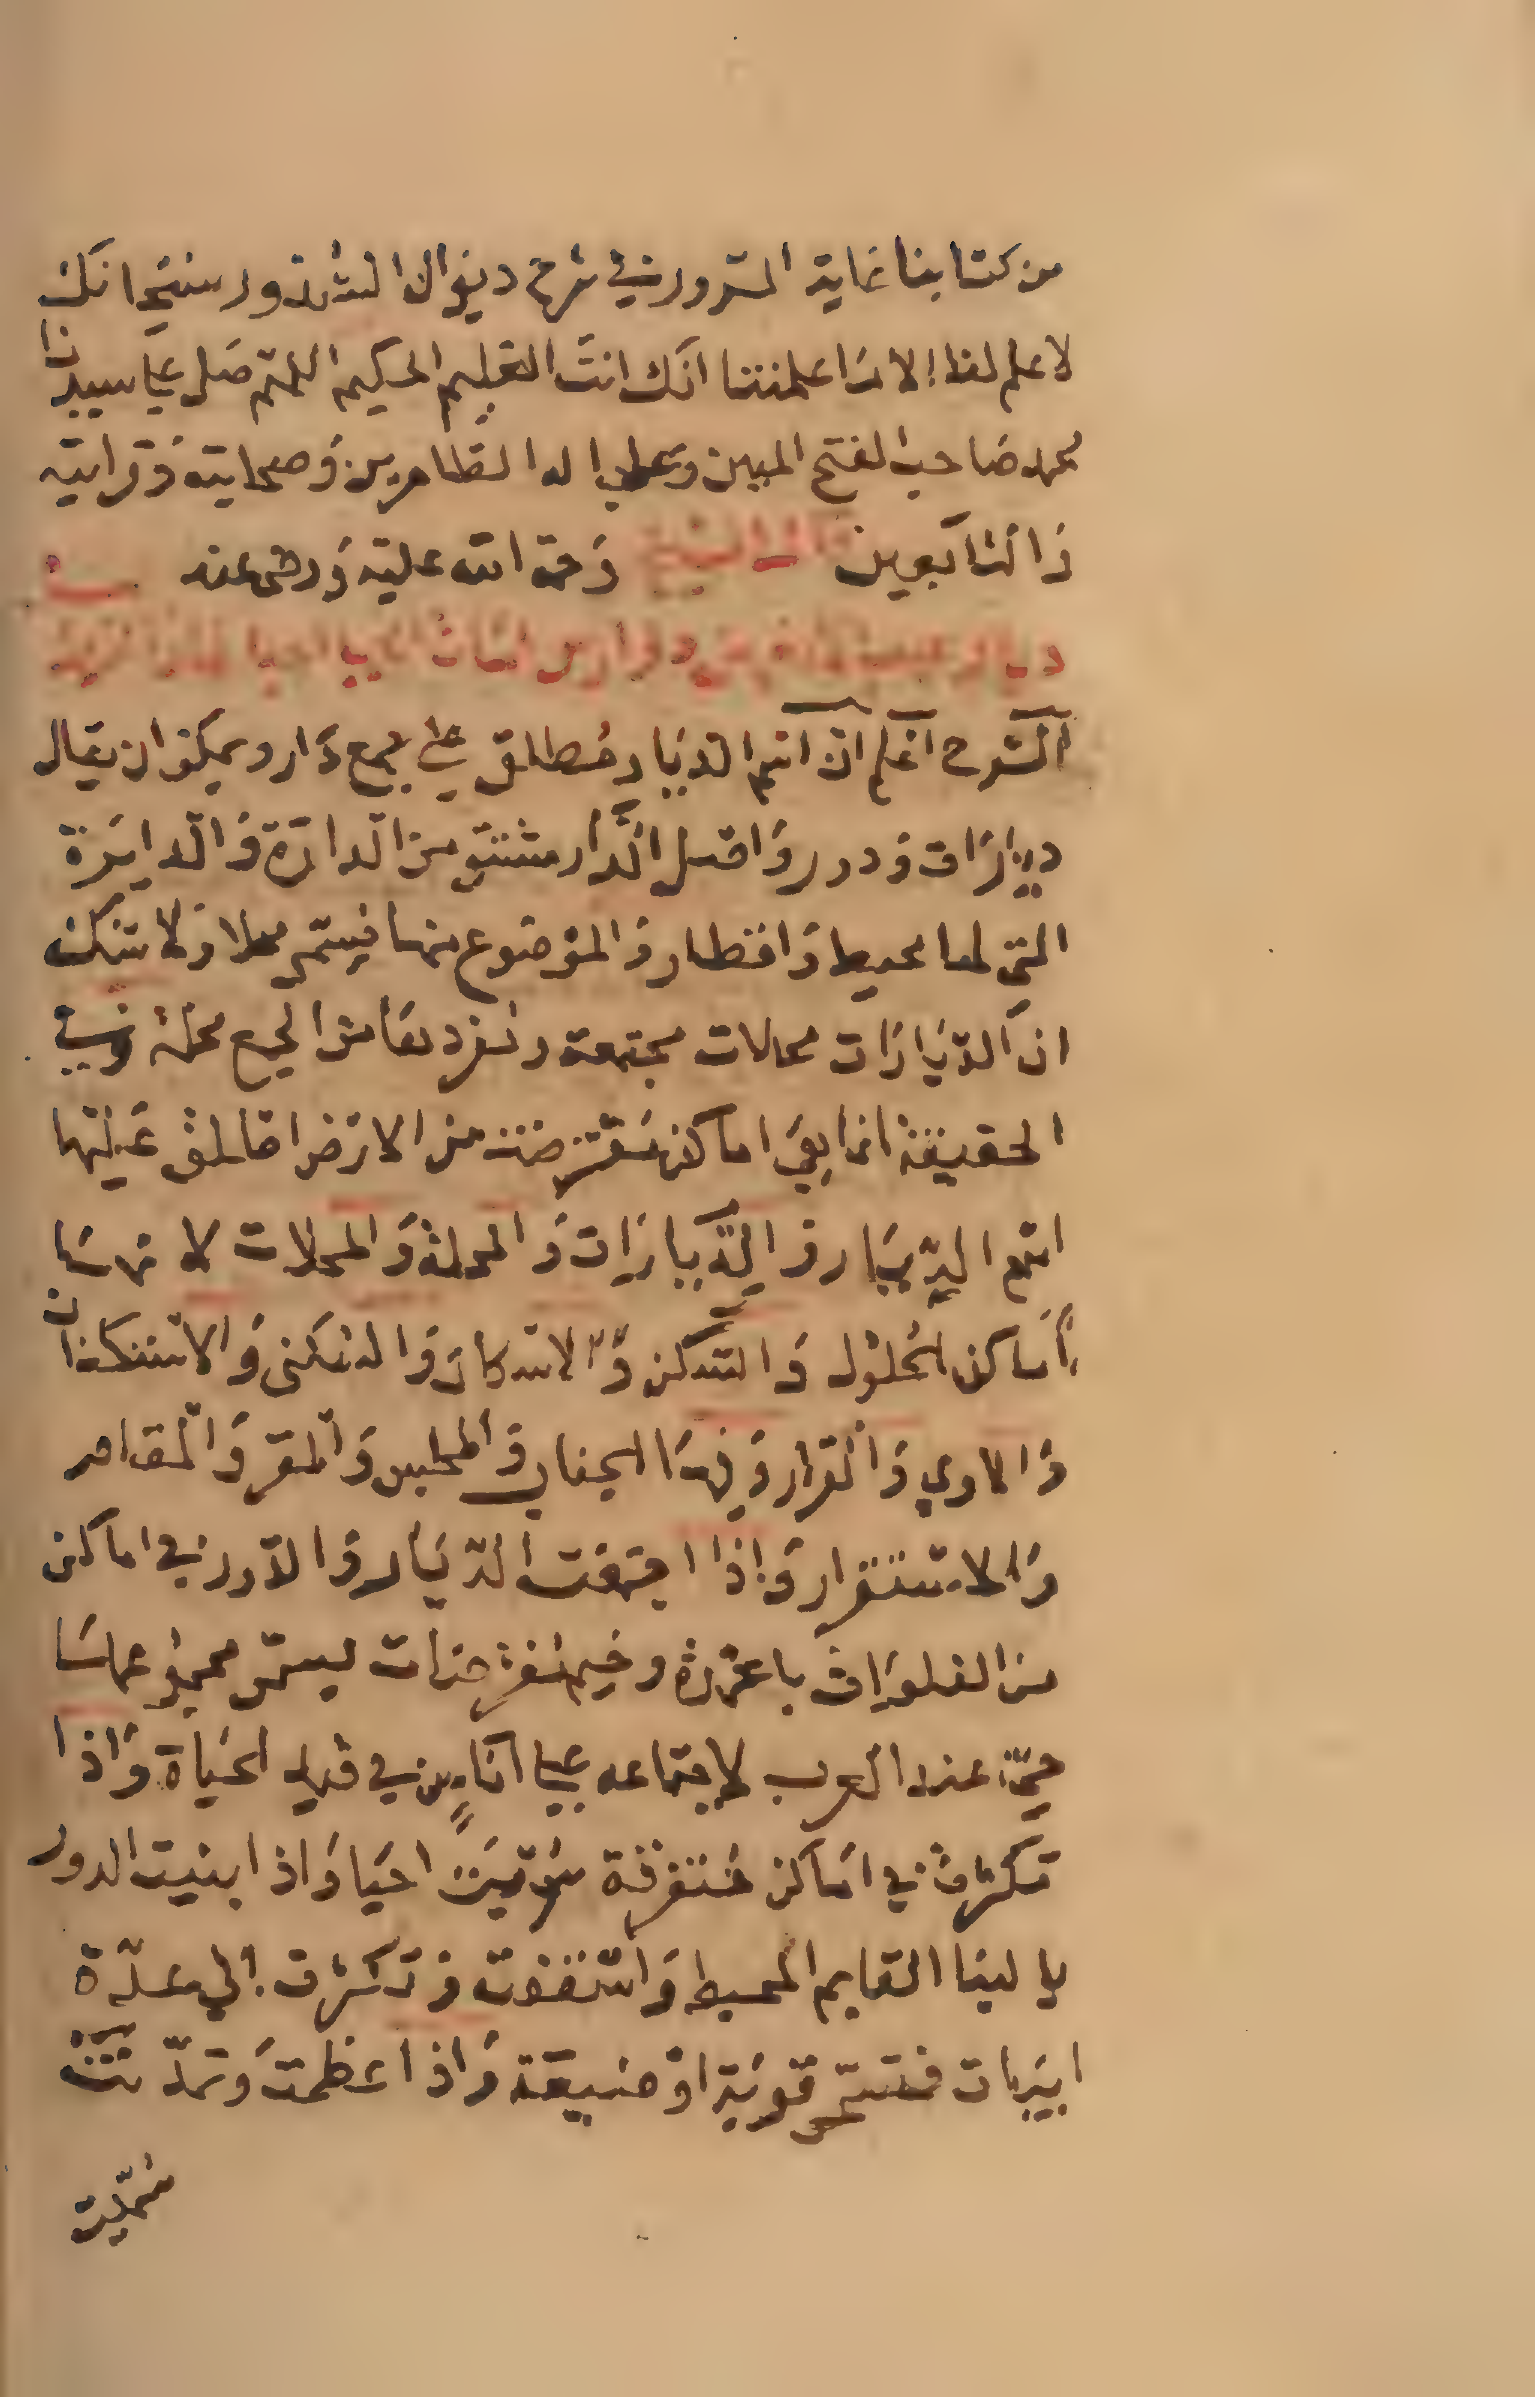 من كتابنا غاية السرور في شرح ديوان الشذور سبحانك
لا علم لنا الا ما علمتنا انك انت العليم الحكيم اللهم صل على سيدنا
محمد صاحب الفتح المبين وعلى اله الطاهرين وصحابته وقرابته
والتابعين قال الشيخ رحمة الله عليه ورضى عنه

الشرح اعلم ان اسم الديار مطلق على جمع دار ويمكن ان يقال
ديارات ودور واصل الدار مشتق من الدارة والدايرة
التي لها محيط واقطار والموضوع منها فيسمى محلا ولا شك
ان الديارات محلات مجتمعة من الجمع محلة وفي
الحقيقة انما هي اماكن مفترضة من الارض اطلق عليها
اسم الديار والديارات والمحلة والمحلات لانها
اماكن الحلول والسكن والاسكان والسكنى والاستكان
والماوي والقرار وفيها الجناب والمجلس والمقر والمقام
والاستقرار واذا اجتمعت الديار والدور في اماكن
من الفلوات باعمدة وخيم مفترضات يسمى مجموعها
حي عند العرب لاجتماعه على اناس في قيد الحياة واذا
تكثرت في اماكن متفرقة سميت احيا واذا بنيت الدور
بالبنا القايم المحيط واسقفت وتكثرت الى عدة
ابيات فتسمى قرية او ضيعة واذا عظمت وتمدنت
سميت